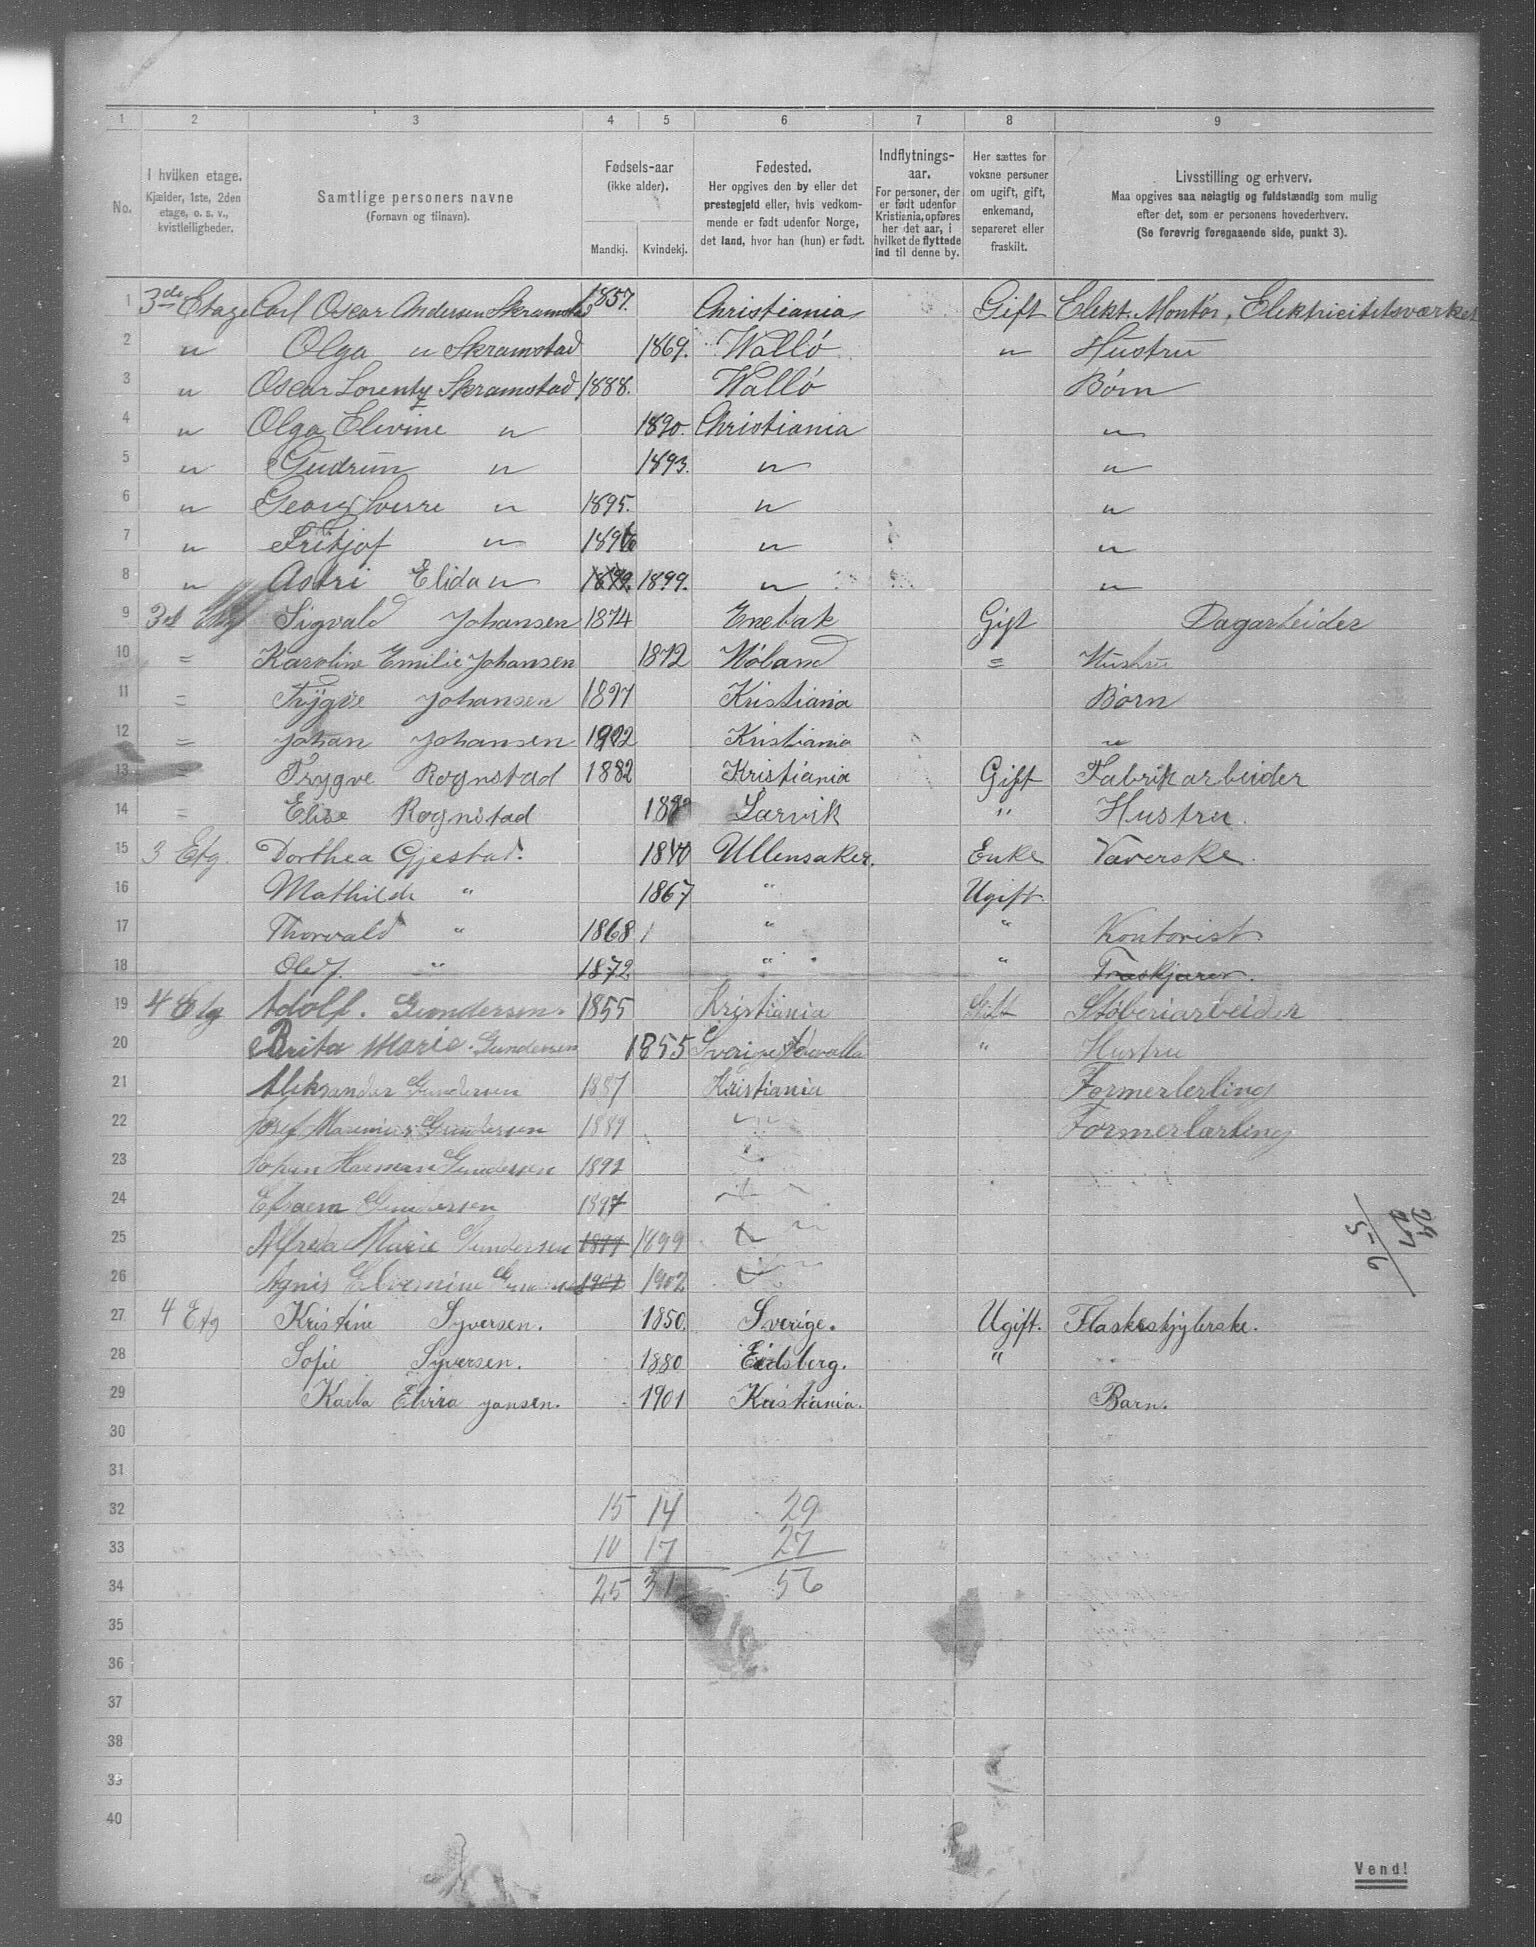 1 2 3 4 5 6 7 8 9
No.
I hvilken etage.
Kjælder, 1ste, 2den etage, o. s. v., kvistleiligheder.
Samtlige personers navne
(Fornavn og tilnavn).
Fødsels-aar
(ikke alder).
Mandkj. Kvindekj.
Fødested.
Her opgives den by eller det prestegjeld eller, hvis vedkommende er født udenfor Norge, det land, hvor han (hun) er født.
Indflytnings-aar.
For personer, der er født udenfor Kristiania, opføres her det aar, i hvilket de flyttede ind til denne by.
Her sættes for voksne personer om ugift, gift, enkemand, separeret eller fraskilt.
Livsstilling og erhverv.
Maa opgives saa nøiagtig og fuldstændig som mulig efter det, som er personens hovederhverv.
(Se forøvrig foregaaende side, punkt 3).
1 3de Etage Carl Oscar Andersen Skramstad 1857. Christiania Gift Elekt. Montør, Elektricitetsværket
2 " Olga " Skramstad 1869. Walló " Hustru
3 " Oscar Lorentz Skramstad 1888. Walló Børn
4 " Olga Elevine " 1890. Christiania "
5 " Gudrun " 1893. " "
6 " Georg Sverre " 1895. " "
7 " Fritjof " 1896 " "
8 " Astri Elida " 1899. 1899. " "
9 3d Etg Sigvald Johansen 1874 Enebak Gift Dagarbeider
10 = Karoline Emilie Johansen 1872 Høland = Hustru
11 = Trygve Johansen 1897 Kristiania Børn
12 = Johan Johansen 1902 Kristiania "
13 = Trygve Rognstad 1882 Kristiania Gift Fabrikarbeider
14 = Elise Rognstad Larvik " Hustru.
15 3 Etg. Dorthea Gjestad. 1840 Ullensaker. Enke Væverske.
16 Mathilde " 1867 " Ugift.
17 Thorvald " 1868 " " Kontorist
18 Olaf. " 1872 " " Træskjærer.
19 4 Etg Adolf. Gundersen. 1855 Kristiania Gift Støberiarbeider
20 Brita Marie. Gundersen 1855 " Hustru
21 Aleksander Gundersen 1887 Kristiania Formerlerling
22 Josef Gundersen 1889 " Formerlærling
23 Johan Herman Gundersen 1892 "
24 Efraem Gundersen 1897 "
25 Alfreda Marie Gundersen 1899 "
26 Agnis 1902 "
27 4 Etg Kristine Syversen. 1850. Sverige. Ugift. Flaskeskjylerske.
28 Sofie Syversen. 1880 Eidsberg. "
29 Karla Elvira Jansen. 1901 Kristiania. Barn.
30
31
32 15 14 29
33 10 17 27
34 25 31 56
35
36
37
38
39
40
29
27
56
Vend!